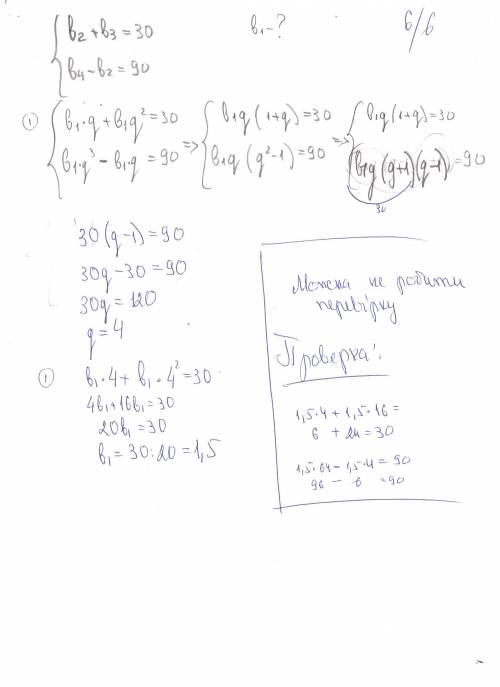 b₂ + b₃ = 30
b₁ - ?
6/6
b₄ - b₂ = 90
① b₁·q + b₁q² = 30
b₁·q³ - b₁q = 90
=> b₁q (1+q) = 30
b₁q (q²-1) = 90
=> b₁q (1+q) = 30
b₁q (q+1)(q-1) = 90
30
30(q-1) = 90
30q - 30 = 90
30q = 120
q = 4
① b₁·4 + b₁·4² = 30
4b₁ + 16b₁ = 30
20b₁ = 30
b₁ = 30:20 = 1,5
Можна не робити
перевірку
Проверка:
1,5·4 + 1,5·16 =
6 + 24 = 30
1,5·64 - 1,5·4 = 90
96 - 6 = 90